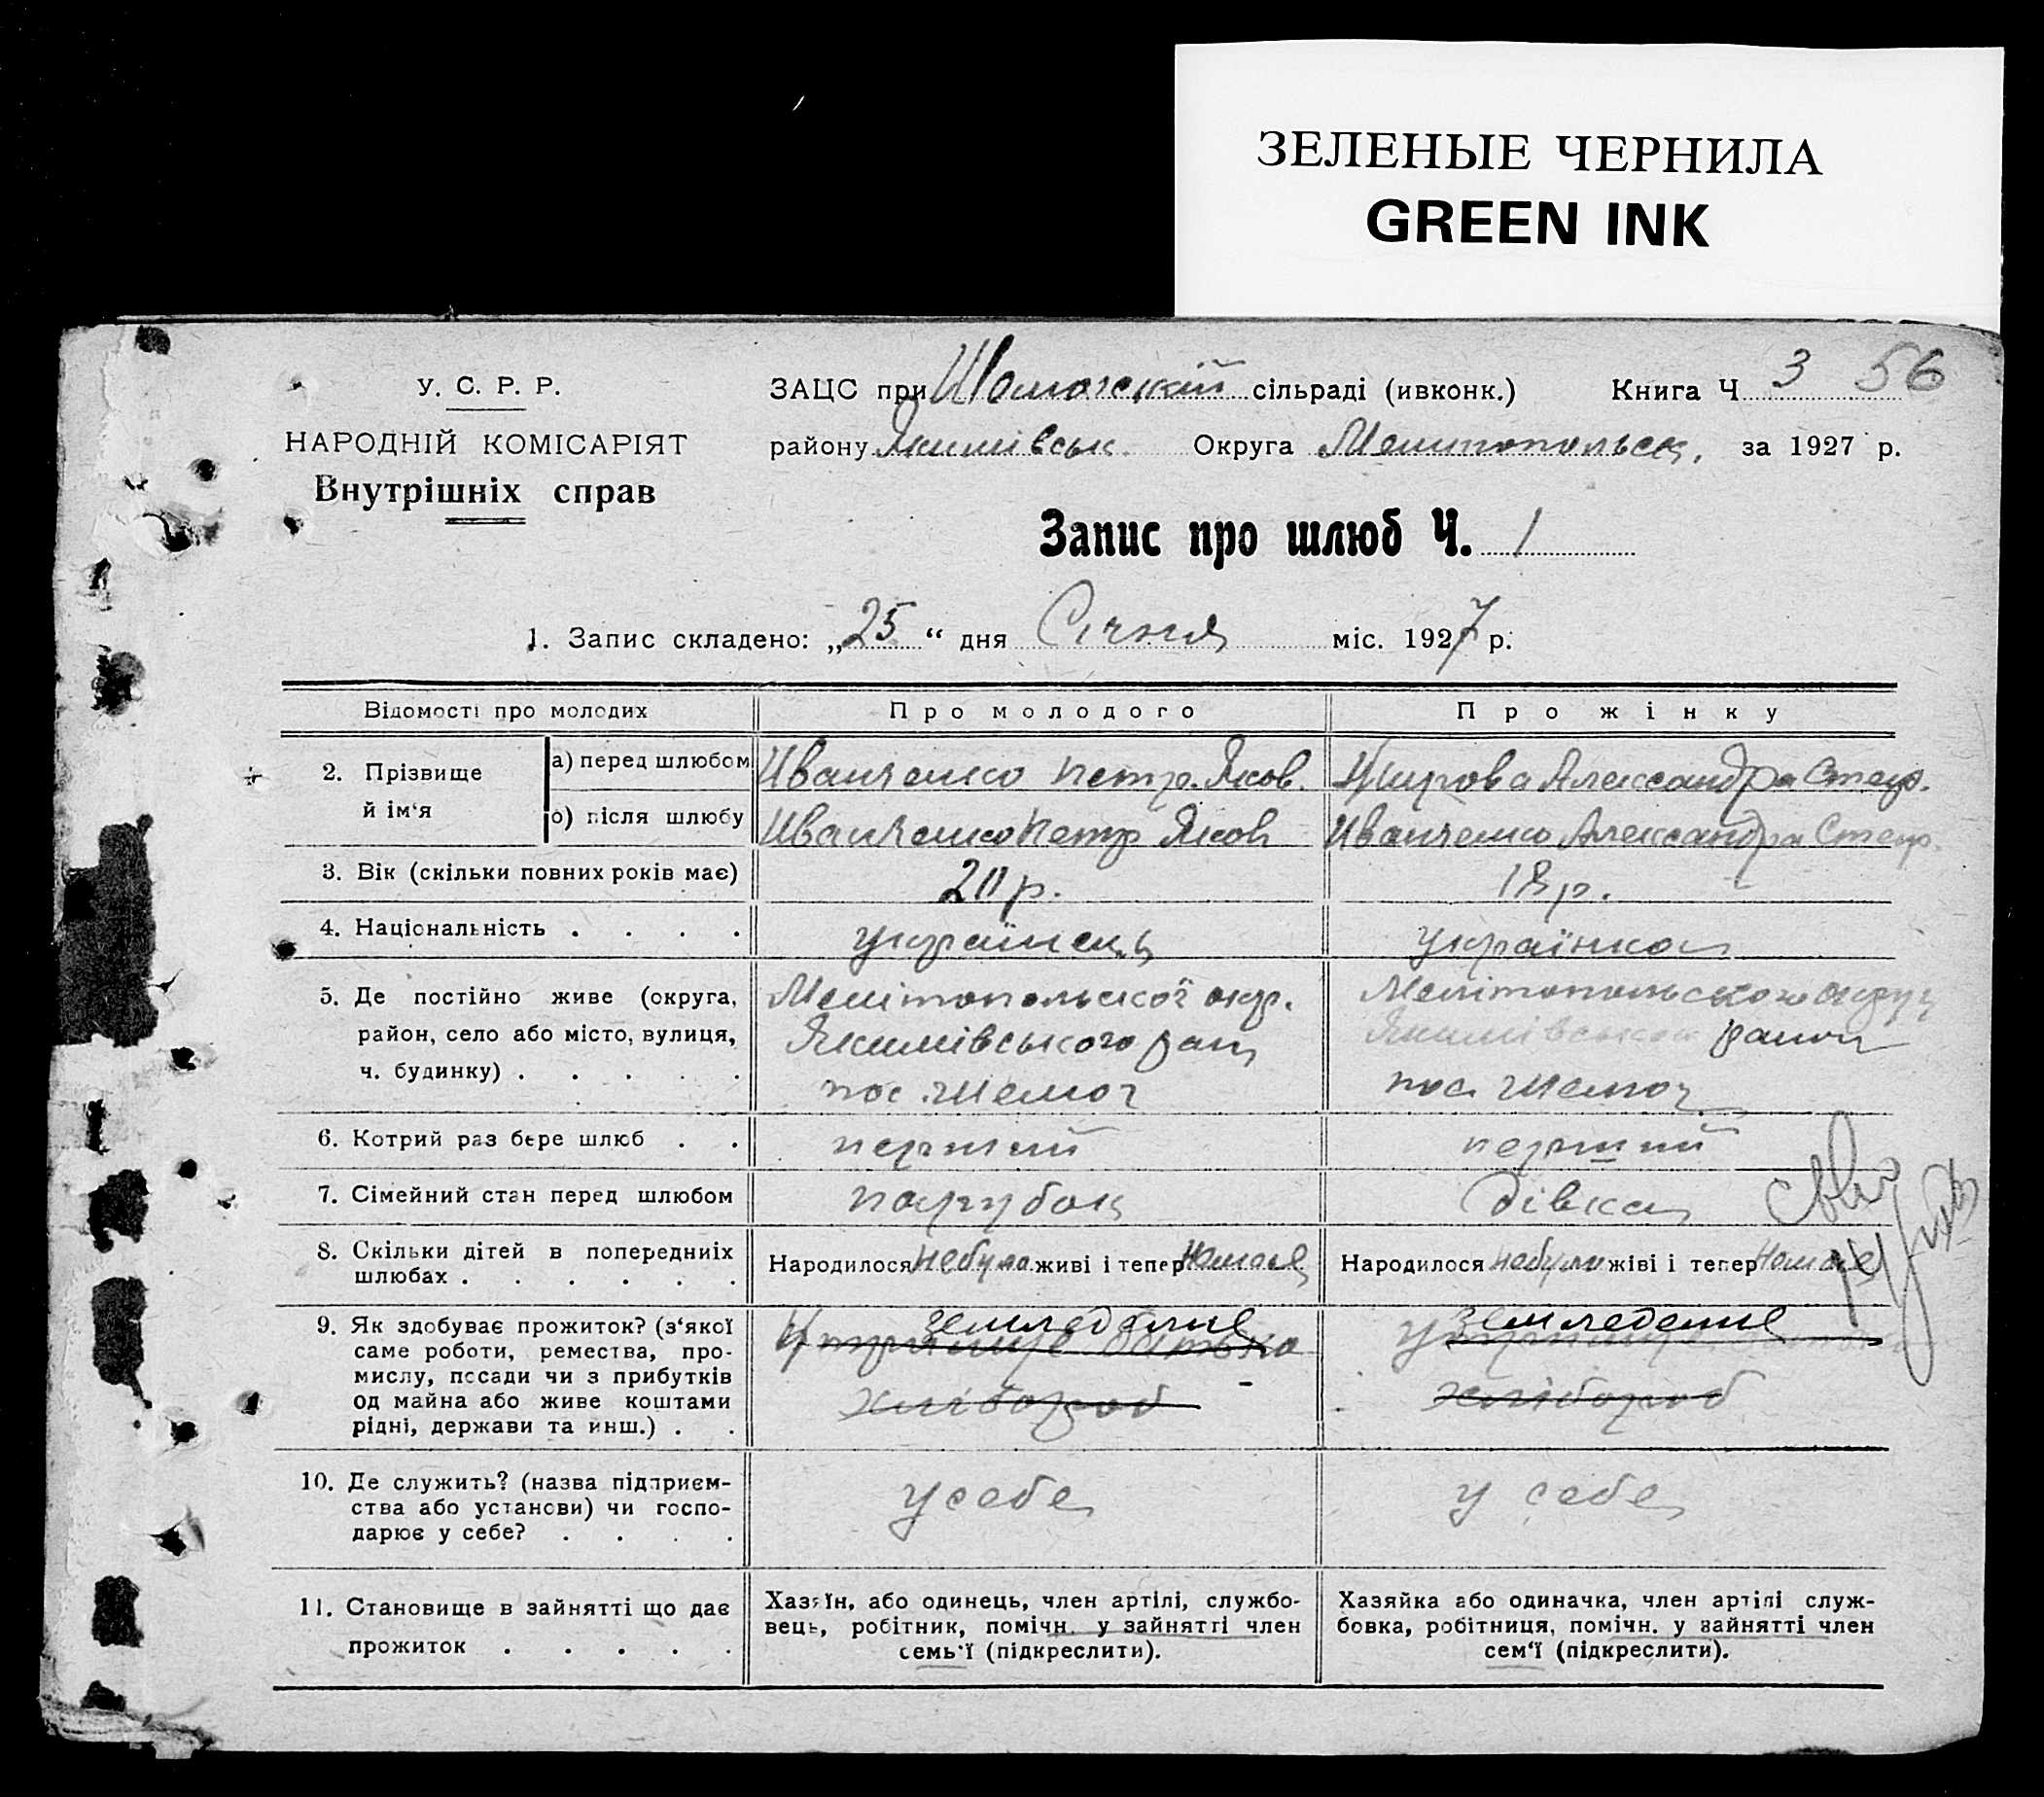 ЗЕЛЕНЫЕ ЧЕРНИЛА
GREEN INK
У. С. Р. Р.
НАРОДНІЙ КОМІСАРІЯТ
Внутрішніх справ
ЗАЦС при сільраді (ивконк.) Книга Ч 3 56
району Якимівськ. Округа Мелитопольск. за 1927 р.
Запис про шлюб Ч. 1
1. Запис складено: „25“ дня Січня міс. 1927 р.
Відомості про молодих Про молодого Про жінку
2. Прізвище й ім‘я
а) перед шлюбом Иванченко Петр. Яков. Александра Степ.
о) після шлюбу Иванченко Петр Яков Иванченко Александра Степ.
3. Вік (скільки повних років має) 20 р. 18 р.
4. Національність . . . . українець українка
5. Де постійно живе (округа, Мелітопольської окр. Мелітопольского округ
район, село або місто, вулиця, Якимівського рай Якимівського район
ч. будинку) . . . . . пос. Шемот пос. Шемот
6. Котрий раз бере шлюб . . перший перший
7. Сімейний стан перед шлюбом парубок дівка
8. Скільки дітей в попередниіх
шлюбах . . . . . .
Народилося небуло живі і тепер Немає Народилося небуло жіві і тепер Немає
9. Як здобуває прожиток? (з‘якої
саме роботи, ремества, про-
мислу, посади чи з прибутків
од майна або живе коштами
рідні, держави та инш.) . .
земледелие земледелие
утримує батько
хлібороб хлібороб
10. Де служить? (назва підприєм-
ства або установи) чи госпо-
дарює у себе? . . . .
у себе у себе
11. Становище в зайнятті що дає
прожиток . . . . .
Хазяїн, або одинець, член артілі, службо-
вець, робітник, помічн. у зайнятті член
семь‘ї (підкреслити).
Хазяйка або одиначка, член артілі служ-
бовка, робітниця, помічн. у зайнятті член
сем‘ї (підкреслити).